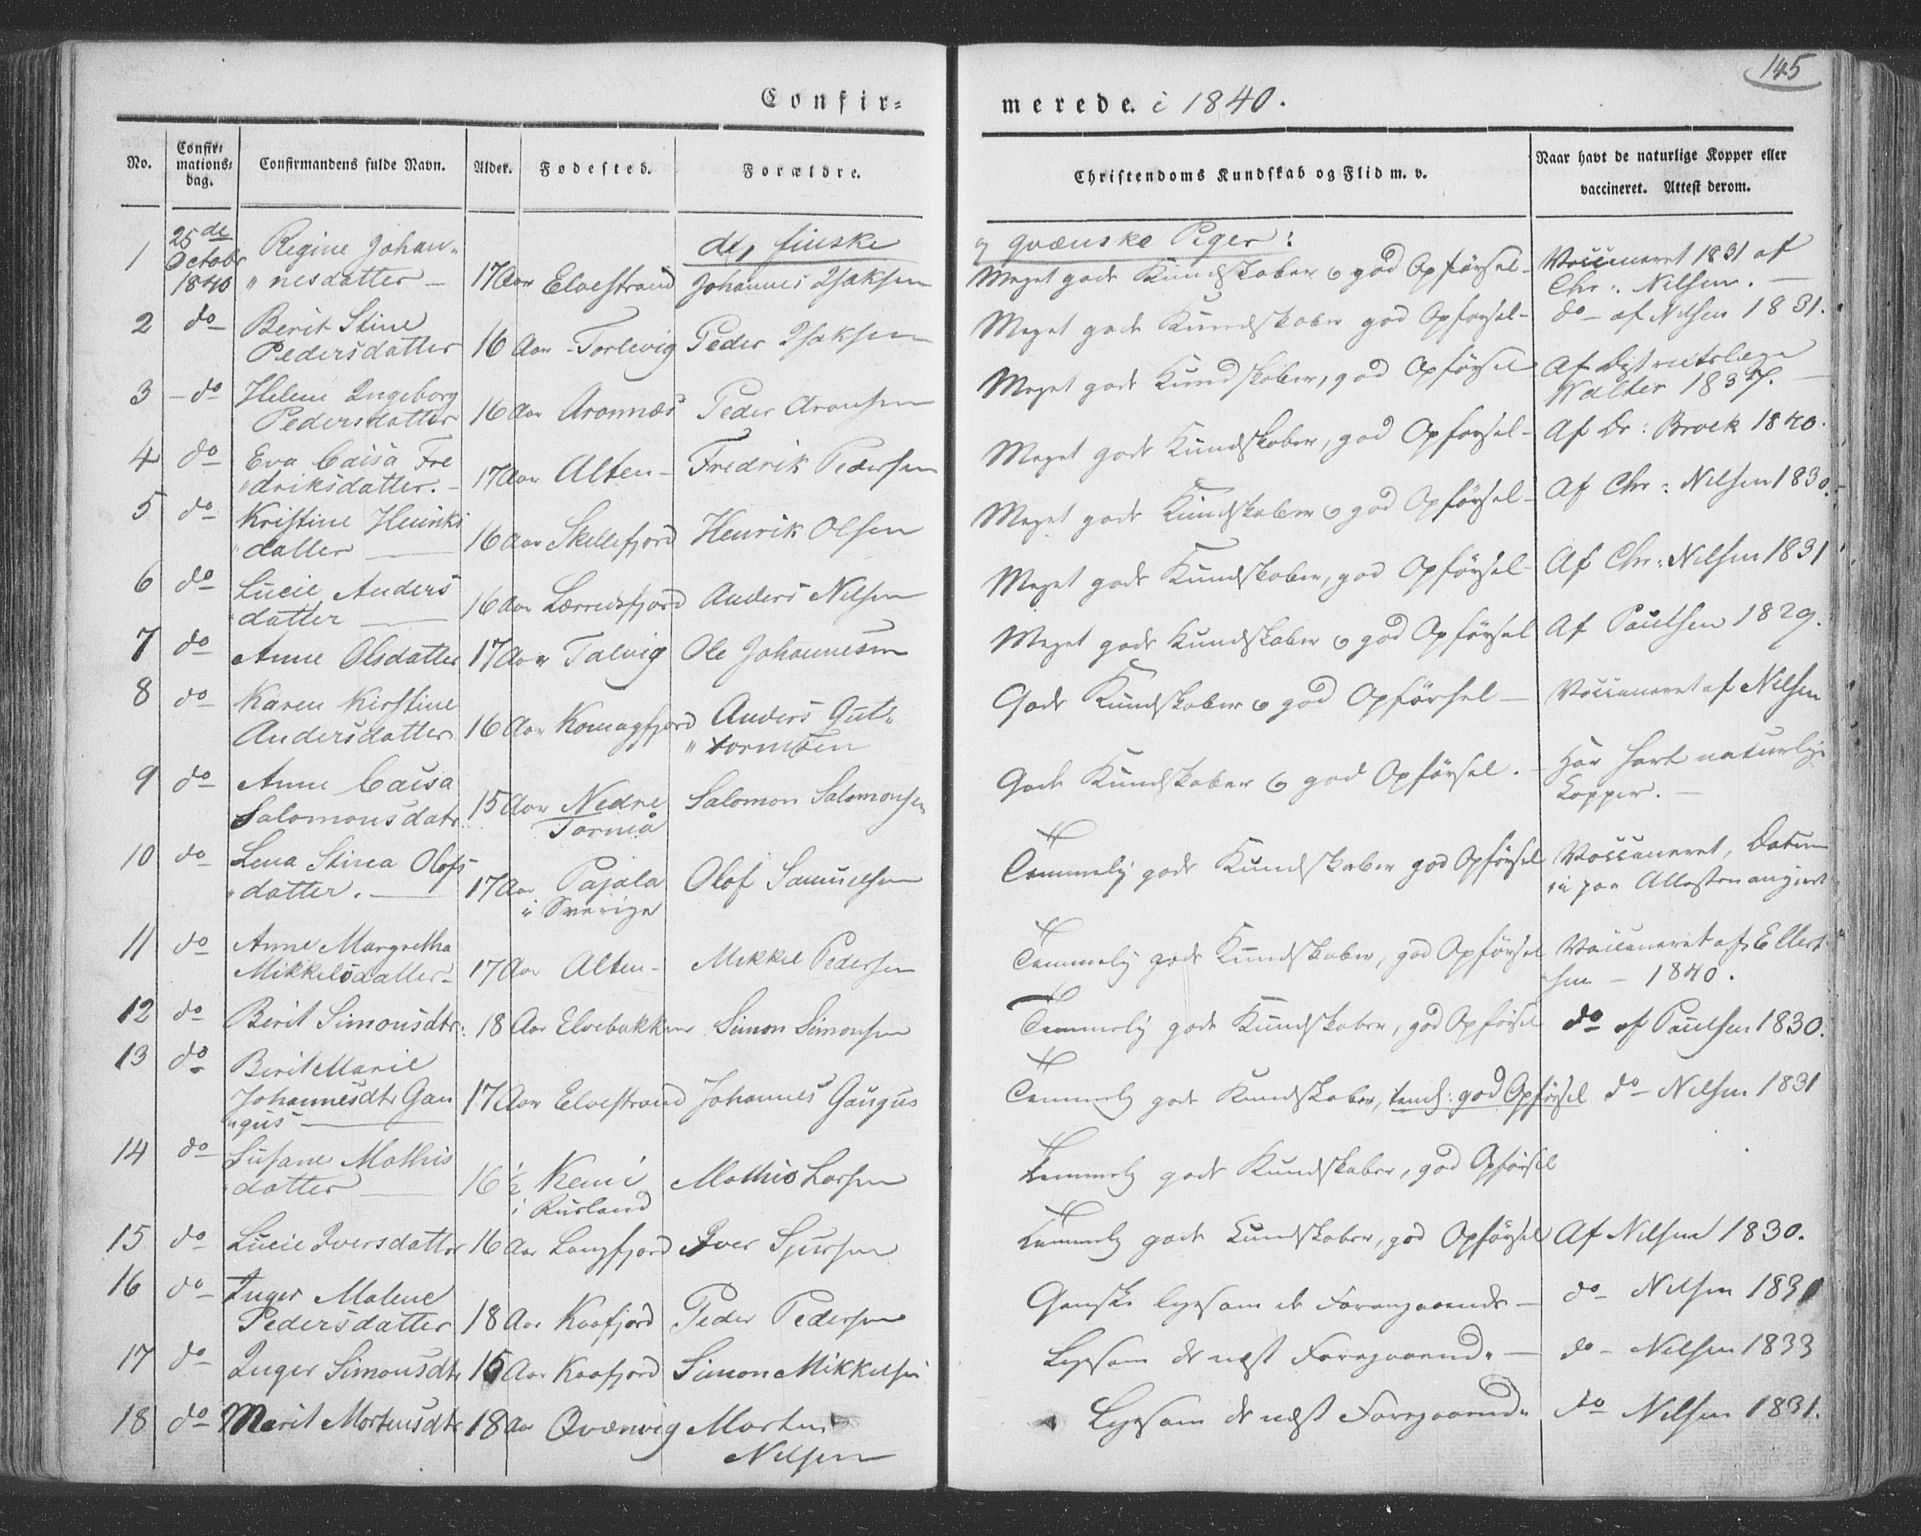 145
Confir=
merede. i 1840.
No.
Confir=
mations=
dag.
Confirmandens fulde Navn.
Alder.
Fødested.
Forældre.
Christendoms Kundskab og Flid m. v.
Naar havt de naturlige Kopper eller
vaccineret. Attest derom.
de, finske
og qvænske Piger:
1 25de Octobr 1840 Regine Johan„
„nesdatter — 17 Aar Elvestrand Johannes Isaksen Meget gode Kundskaber og god Opførsel — Vaccineret 1831 af
Chr: Nilsen. —
2 do Berit Stine
Pedersdatter 16 Aar Torlevig Peder Isaksen Meget gode Kundskaber god Opførsel — do — af Nilsen 1831.
3 do Helene Ingeborg
Pedersdatter 16 Aar Aronnæs Peder Aronsen Meget gode Kundskaber, god Opførsel Af Distriktslæge
Walter 1837. —
4 do Eva Caisa Fre
„driksdatter. — 17 Aar Alten — Fredrik Pedersen Meget gode Kundskaber, god Opførsel — Af Dr: Brock 1840.
5 do Kristine Heinks
„datter — 16 Aar Skillefjord Henrik Olsen Meget gode Kundskaber og god Opførsel — Af Chr: Nilsen 1830.
6 do Lucie Anders
„datter — 16 Aar Lerredsfjord Anders Nilsen Meget gode Kundskaber, god Opførsel — Af Chr: Nilsen 1831
7 do Anne Olsdatter 17 Aar Talvig Ole Johannesen Meget gode Kundskaber og god Opførsel Af Paulsen 1829.
8 do Karen Kirstine
Andersdatter 16 Aar Komagfjord Anders Gut„
„tormsen Gode Kundskaber og god Opførsel — Vaccineret af Nilsen
9 do Anne Caisa
Salomonsdatr 15 Aar Nedre
Torneå Salomon Salomonsen Gode Kundskaber og god Opførsel. — Har havt naturlige
Kopper. —
10 do Lena Stina Olofs
„datter. — 17 Aar Pajala
i Sverige Olof Samuelsen Temmelig gode Kundskaber god Opførsel Vaccineret, Datum
ei paa Attesten angivet
11 do Anne Margretha
Mikkelsdatter — 17 Aar Alten — Mikkel Pedersen Temmelig gode Kundskaber, god Opførsel Vaccineret af Ellert
sen — 1840.
12 do Berit Simonsdtr: 18 Aar Elvebakken Simon Simonsen Temmelig gode Kundskaber, god Opførsel do af Paulsen 1830.
13 do Berit Marie
Johannesdtr Gau
„gus — 17 Aar Elvestrand Johannes Gaugus Temmelig gode Kundskaber, god Opførsel do — Nilsen 1831
14 do Susane Mathis
„datter — 16 ½ Kemi
i Rusland Mathis Larsen Temmelig gode Kundskaber, god Opførsel
15 do Lucie Iversdatter 16 Aar Langfjord Iver Sjursen Temmelig gode Kundskaber, god Opførsel Af Nilsen 1830.
16 do Inger Malene
Pedersdatter 18 Aar Kaafjord Peder Pedersen Ganske ligesom de Foregaaende — do — Nilsen 1831
17 do Inger Simonsdtr 15 Aar Kaafjord Simon Mikkelsen Ligesom de næst Foregaaende — do — Nilsen 1833
18 do Marit Mortensdtr 18 Aar Qvænvig Morten
Nilsen Ligesom de næst Foregaaende do Nilsen 1831.